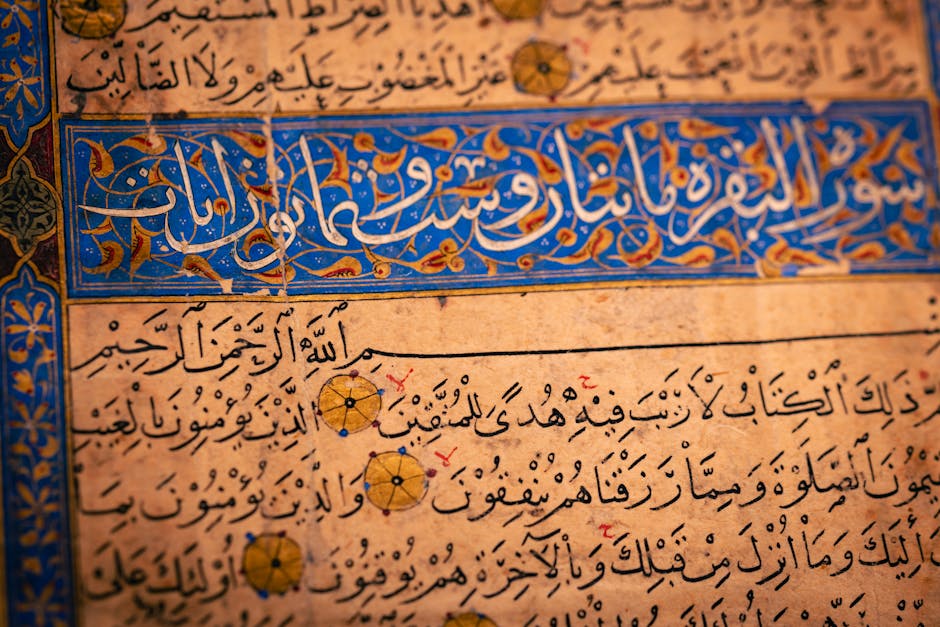 نَسْتَعِينُ اِهْدِنَا الصِّرَاطَ الْمُسْتَقِيْمَ
صِرَاطَ الَّذِيْنَ اَنْعَمْتَ عَلَيْهِمْ غَيْرِ الْمَغْضُوْبِ عَلَيْهِمْ وَلَا الضَّالِّيْنَ
سورة البقرة مايتان وست وثمانون ايات
بسم اللَّهِ الرَّحْمٰنِ الرَّحِيْمِ
ذٰلِكَ الْكِتَابُ لَا رَيْبَ فِيْهِ هُدًى لِلْمُتَّقِيْنَ الَّذِيْنَ يُؤْمِنُوْنَ بِالْغَيْبِ
يمُوْنَ الصَّلٰوةَ وَمِمَّا رَزَقْنَاهُمْ يُنْفِقُوْنَ وَالَّذِيْنَ يُؤْمِنُوْنَ بِمَا
اِلَيْكَ وَمَا اُنْزِلَ مِنْ قَبْلِكَ وَبِالْاٰخِرَةِ هُمْ يُوْقِنُوْنَ اُولٰئِكَ عَلٰى